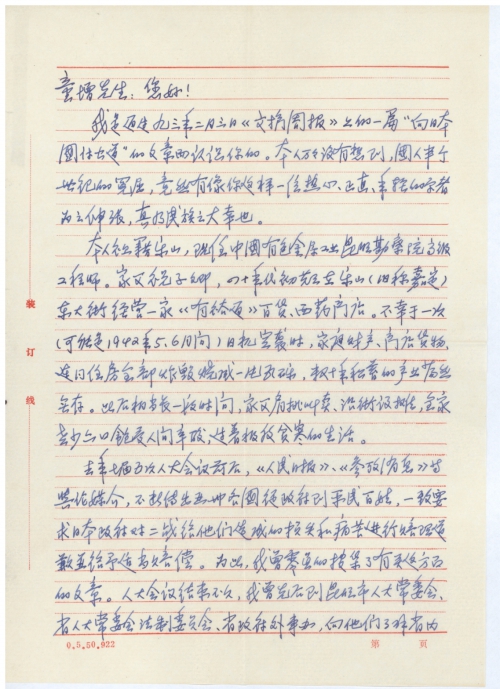 童增先生：您好！
我是通过九三年二月三日《文摘周报》上的一篇"向日本
国讨公道"的文章而认识你的。本人万万没有想到，国人半个
世纪的冤屈，竟然有像你这样一位热心、正直、年轻的学者
为之伸张，真乃民族之大幸也。
本人祖籍乐山，现任中国有色金属工业昆明勘察院高级
工程师。家父倪子卿，四十年代初先在乐山（旧称嘉定）
东大街经营一家《有》百货、西药商店。不幸于一次
（可能是1942年5.6月间）日机空袭时，家庭财产、商店货物，
连同住房全部炸毁烧成一片瓦砾，数十年积蓄的产业荡然
无存。此后相当长一段时间，家父肩挑叫卖、沿街设摊，全家
老少六口饱受人间辛酸，过着极度贫寒的生活。
去年七届五次人大会议前后，《人民日报》、《参考消息》等
舆论媒介，不断传出亚洲各国从政府到平民百姓，一致要
求日本政府对二战给他们造成的损失和痛苦进行赔礼道
歉并给予适当赔偿。为此，我曾零星的搜集了有关这方面
的文章。人大会议结束不久，我曾先后到昆明市人大常委会、
省人大常委会法制委员会、省政府外事办，向他们了解省内
装
订
线
0.5.50.922
第 页